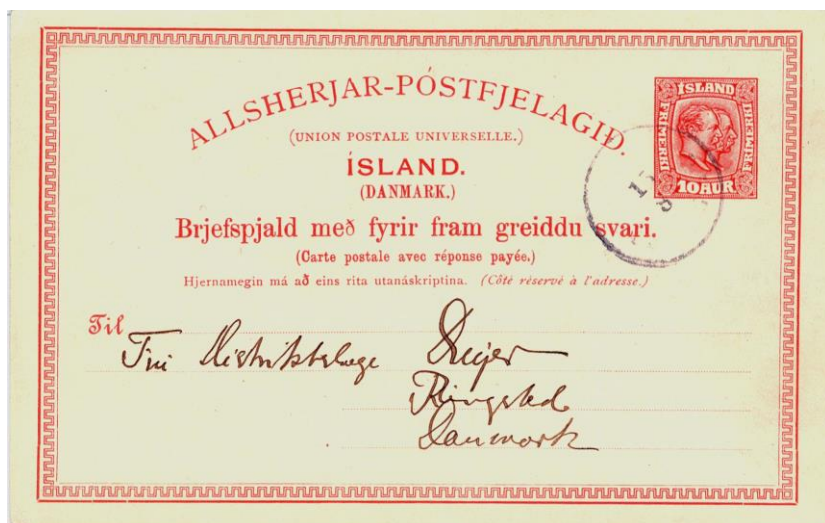 ALLSHERJAR-PÓSTFJELAGIÐ.
(UNION POSTALE UNIVERSELLE.)
ÍSLAND.
(DANMARK.)
Brjefspjald með fyrir fram greiddu svari.
(Carte postale avec réponse payée.)
Hjernamegin má að eins rita utanáskriptina. (Côté réservé à l'adresse.)
ÍSLAND
FRÍMERKI
FRÍMERKI
10 AUR
Til
Distriktslæge
Ringsted
Danmark